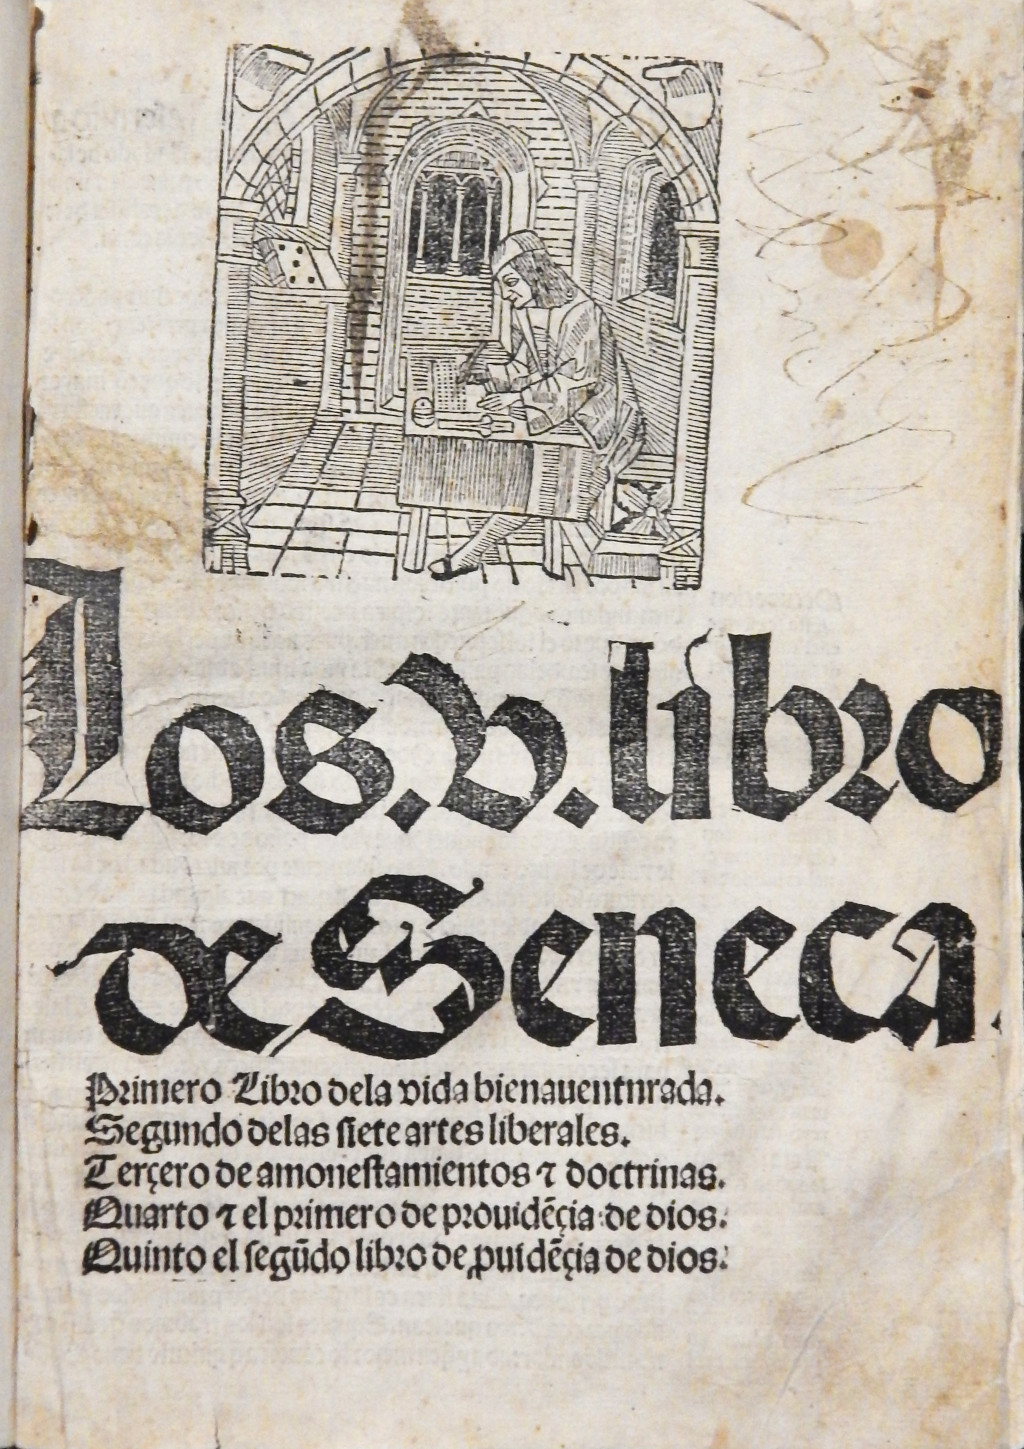 Los.V.libro
de Seneca.
Primero Libro dela vida bienauentnrada.
Segundo delas siete artes liberales.
Terçero de amonestamientos ⁊ doctrinas.
Quarto ⁊ el primero de prouidẽçia de dios.
Quinto el segũdo libro de ꝓuidẽçia de dios.